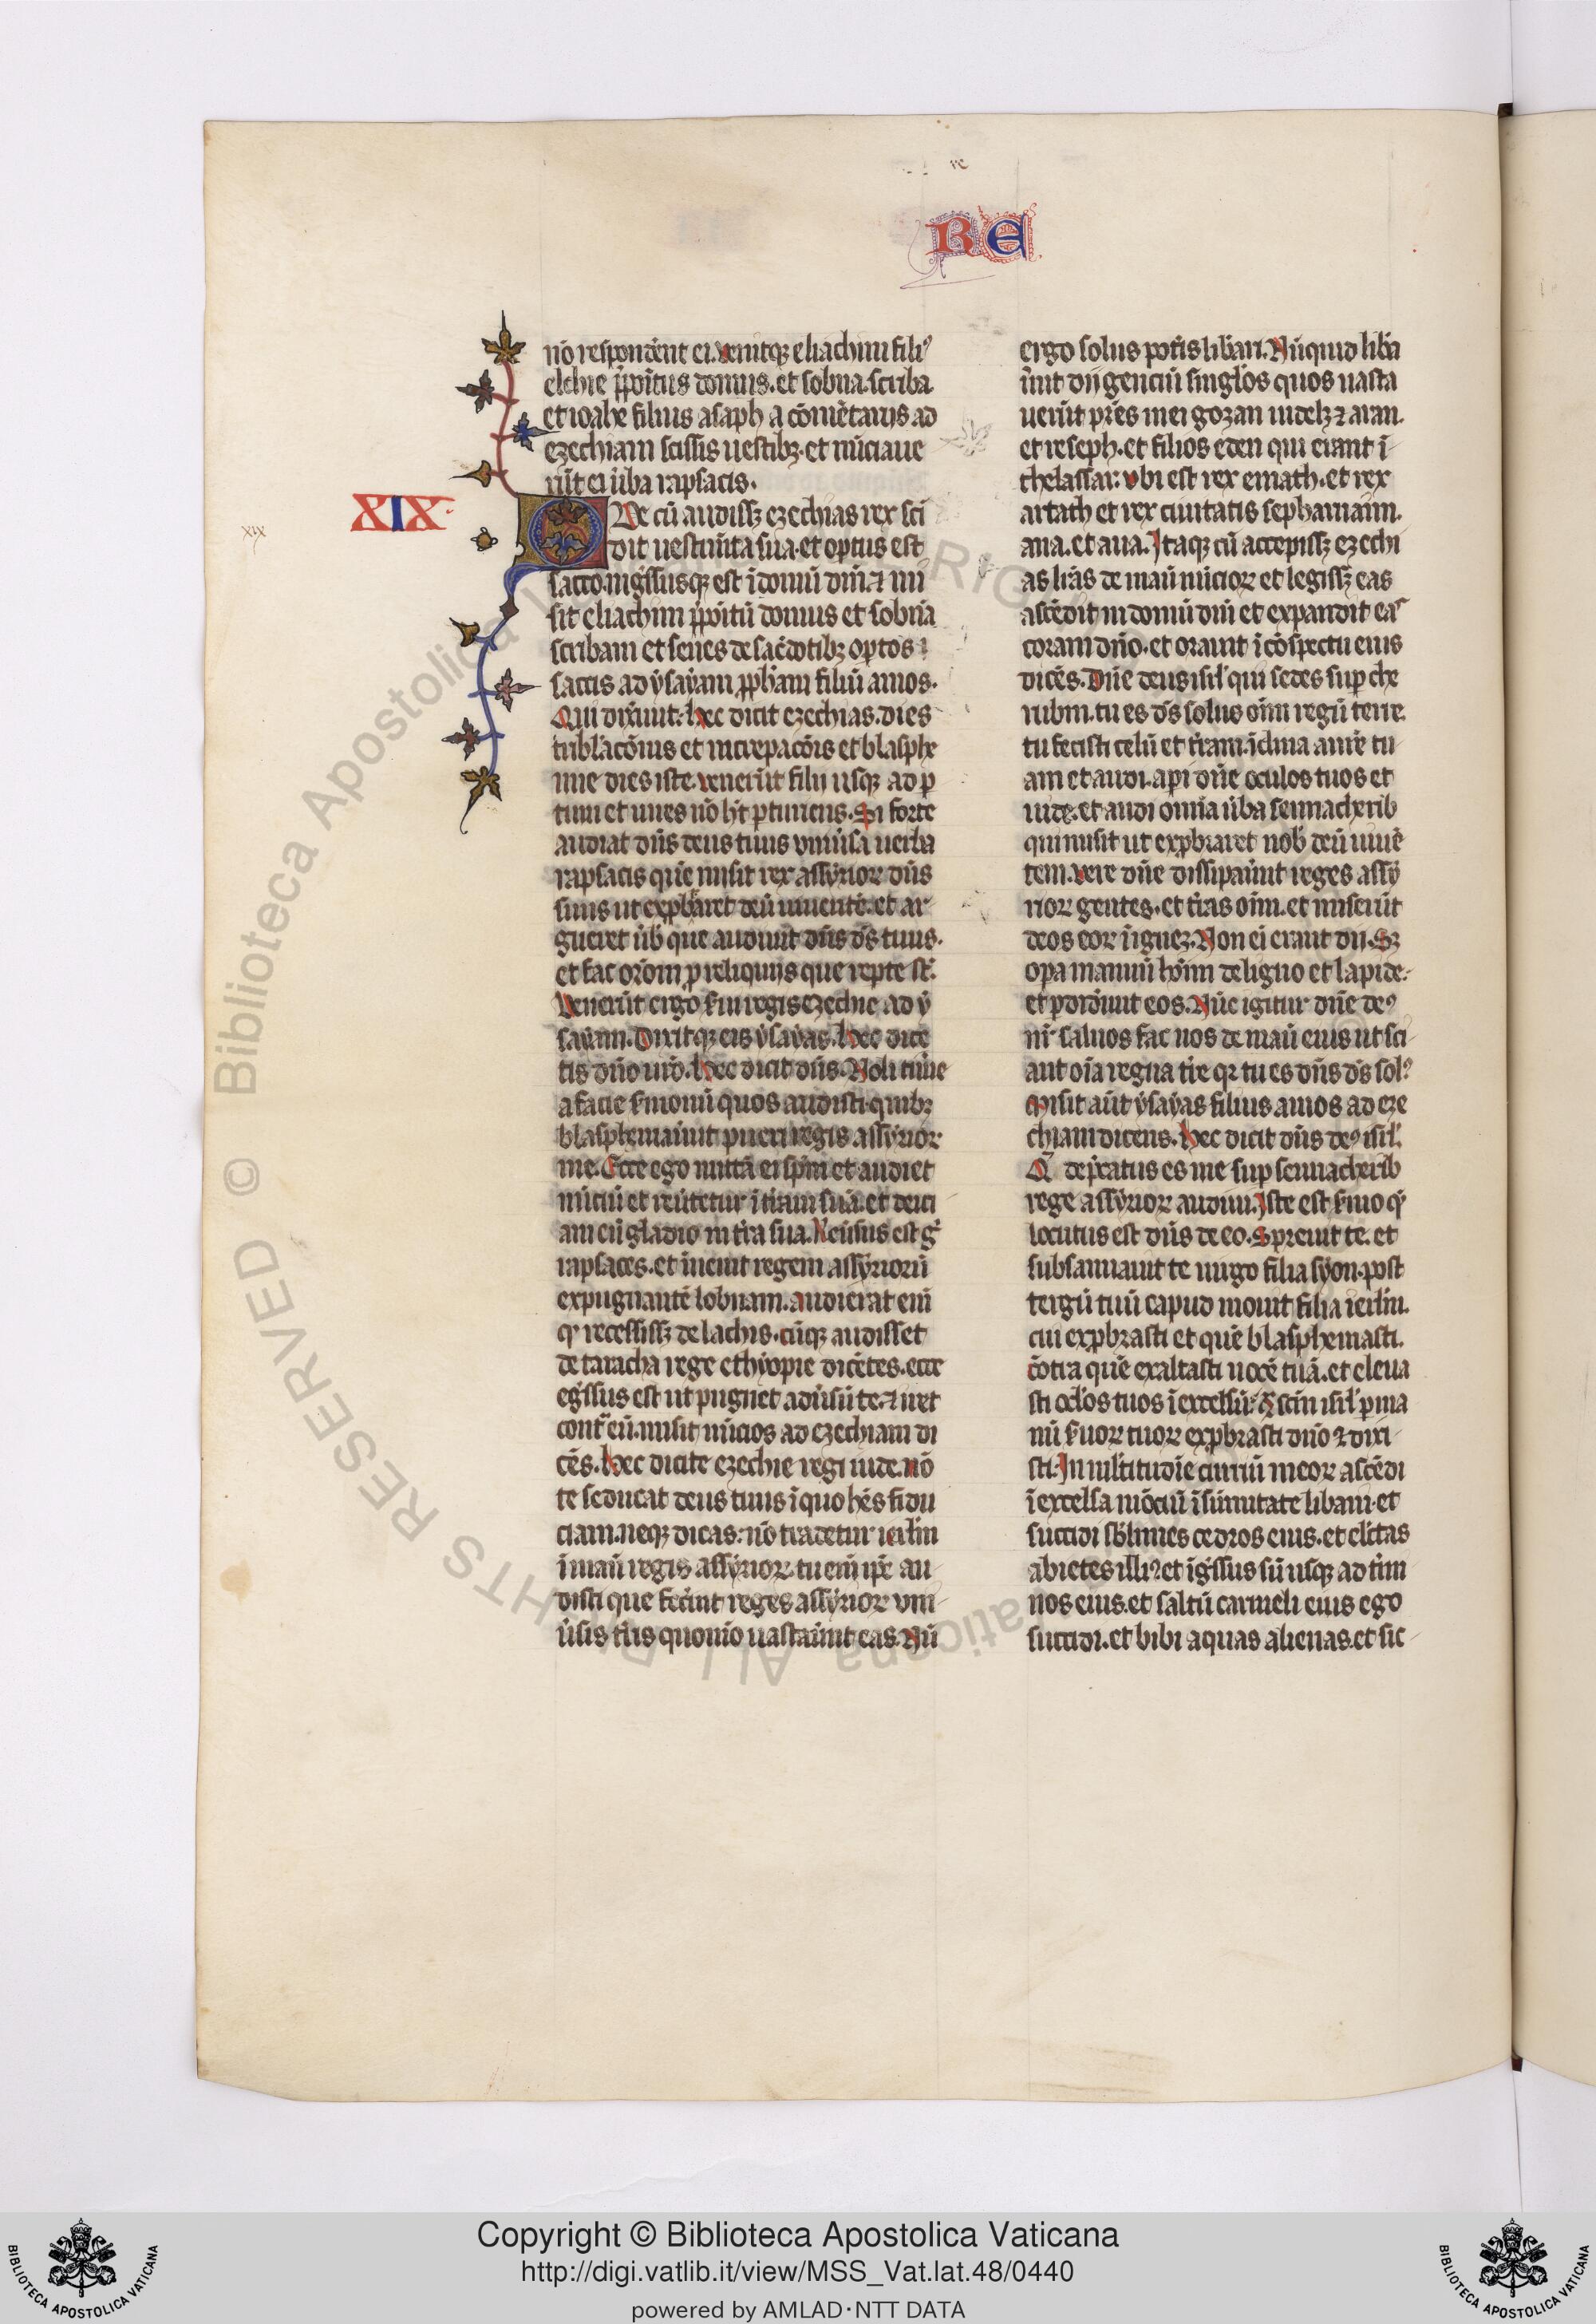 re
RE
nō respondẽnt ei. venitqꝫ eliachim filiꝰ
elchie p̄poitus domus. et sobna. scriba
et ioahe filius asaph a cōmẽtariis ad
ezechiam scissis uestibꝫ. et nūciaue
rūt ei ūba rapsacis.
XIX
xix
Qve cū audissꝫ ezechias rex sci
dit uestimēta sua. et optus est
sacco. ingͥssusqꝫ est ī domū dn̄i. ⁊ mi
sit eliachim p̄poitū domus et sobnā
scribam et senes de sac̄dotibꝫ optos
saccis ad ysayam ꝓph̄am filiū amos.
Qui dix̄unt. hec dicit ezechias. dies
tribl̄acōnis et increpacōis et blasphe
mie dies iste. venerūt filii usqꝫ ad p
tum et uires nō ht̄ pturiens. Si forte
audiat dn̄s deus tuus vniūsa uerba
rapsacis que misit rex assyrioꝝ dn̄s
suus ut expbāret deū uiuentē. et ar
gueret ūb que audiuit dn̄s ds̄ tuus.
et fac orōm p reliquiis que repte st̄.
Venerūt ergo ẜui regis ezechie ad y
sayam. Dixitqꝫ eis ysayas. hec dice
tis dn̄o ur̄o. hec dicit dn̄s. Noli time
a facie ẜmonū quos audisti. quibꝫ
blasphemauīnt pueri regis assyrioꝝ
me. Ecce ego mittā ei spm̄ et audiet
nūciū et reūtetur ī tr̄am suā. et deici
am eū gladio in tr̄a sua. Reūsus est gͦ
rapsaces. et inuenit regem assyriorū
expugnantē lobnam. audierat eni
qͥ recessissꝫ de lachis. cūqꝫ audisset
de taracha rege ethyopie dicētes. ecce
egͥssus est ut pugnet adūsū te. ⁊ iret
contͣ eū. misit nūcios ad ezechiam di
cēs. hec dicite ezechie regi iude. nō
te seducat deus tuus ī quo hēs fidu
ciam. neqꝫ dicas. nō tradetur ierl̄m
ī manū regis assyrioꝝ. tu eni ip̄e au
disti que fec̄int reges assyrioꝝ vni
ūsis tr̄is quomō uastauīnt eas. Nū
ergo solus potīs libāri. Nūquid libā
ūnt dii genciū singl̄os quos uasta
uerūt pr̄es mei gozan uidelꝫ ⁊ aran.
et reseph. et filios eden qui erant ī
thelassar. vbi est rex emath. et rex
arfath et rex ciuitatis sepharuaim.
ana. et aua. Itaqꝫ cū accepissꝫ ezechi
as lrās de manū nūcioꝝ et legissꝫ eas
ascēdit in domū dn̄i et expandit eas
coram dn̄o. et orauit ī cōspectu eius
dicēs. Dn̄e deus isrl̄ qui sedes sup che
rubin. tu es ds̄ solus oīm regū terre.
tu fecisti celū et tr̄am. īclina aurē tu
am et audi. api dn̄e oculos tuos et
uide. et audi omnia ūba sennacherib
qui misit ut expbraret nob̄ deū uiuē
tem. vere dn̄e dissipauīnt reges assy
rioꝝ gentes. et tr̄as oīm. et miserūt
deos eoꝝ ī ignez. Non ei erant dii. Sꝫ
opa manuū hoīm de ligno et lapide.
et pdidīunt eos. Nūc igitur dn̄e deꝰ
nr̄ saluos fac nos de manū eius ut sci
ant oīa regna tr̄e qꝛ tu es dn̄s ds̄ solꝰ
Misit aūt ysayas filius amos ad eze
chiam dicens. hec dicit dn̄s deꝰ isrl̄.
Q̄ dep̄catus es me sup sennacherib
rege assyrioꝝ audiui. Iste est ẜmo qͥ
locutus est dn̄s de eo. Spreuit te. et
subsannauit te uirgo filia syon. post
tergū tuū capud mouit filia ierl̄m.
cui expbrasti et quē blasphemasti.
cōtra quē exaltasti uocē tuā. et eleua
sti ocl̄os tuos ī excelsū. ꝯ sc̄m isrl̄. p ma
nū ẜuoꝝ tuoꝝ expbrasti dn̄o ⁊ dixi
sti. In ml̄titudīe curruū meoꝝ ascēdi
ī excelsa mōciū ī sūmitate libani. et
succidi sb̄limes cedros eius. et elc̄tas
abietes illiꝰ. et īgͥssus sū usqꝫ ad tīm
nos eius. et saltū carmeli eius ego
succidi. et bibi aquas alienas. et sic
Copyright © Biblioteca Apostolica Vaticana
http://digi.vatlib.it/view/MSS_Vat.lat.48/0440
powered by AMLAD·NTT DATA
BIBLIOTECA APOSTOLICA VATICANA
BIBLIOTECA APOSTOLICA VATICANA
© Biblioteca Apostolica Vaticana ALL RIGHTS RESERVED